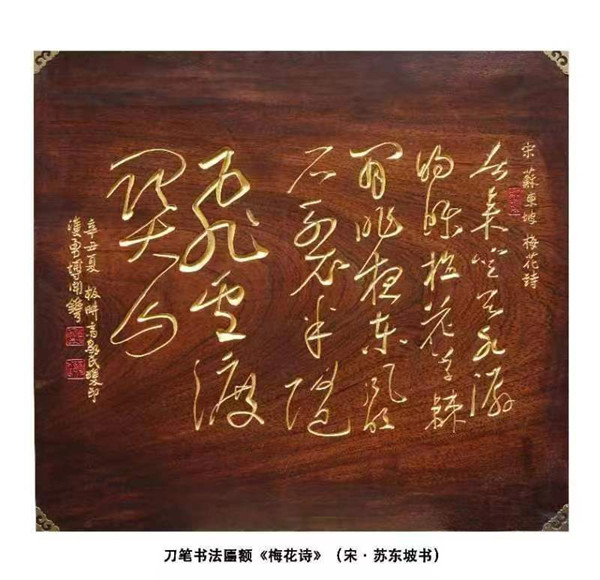 宋 蘇東坡 梅花詩
春來空谷水潺
的皪梅花草棘
間昨夜東風吹
石裂半隨
飛雪渡
關山
辛丑夏
刀笔书法匾额《梅花诗》（宋·苏东坡书）